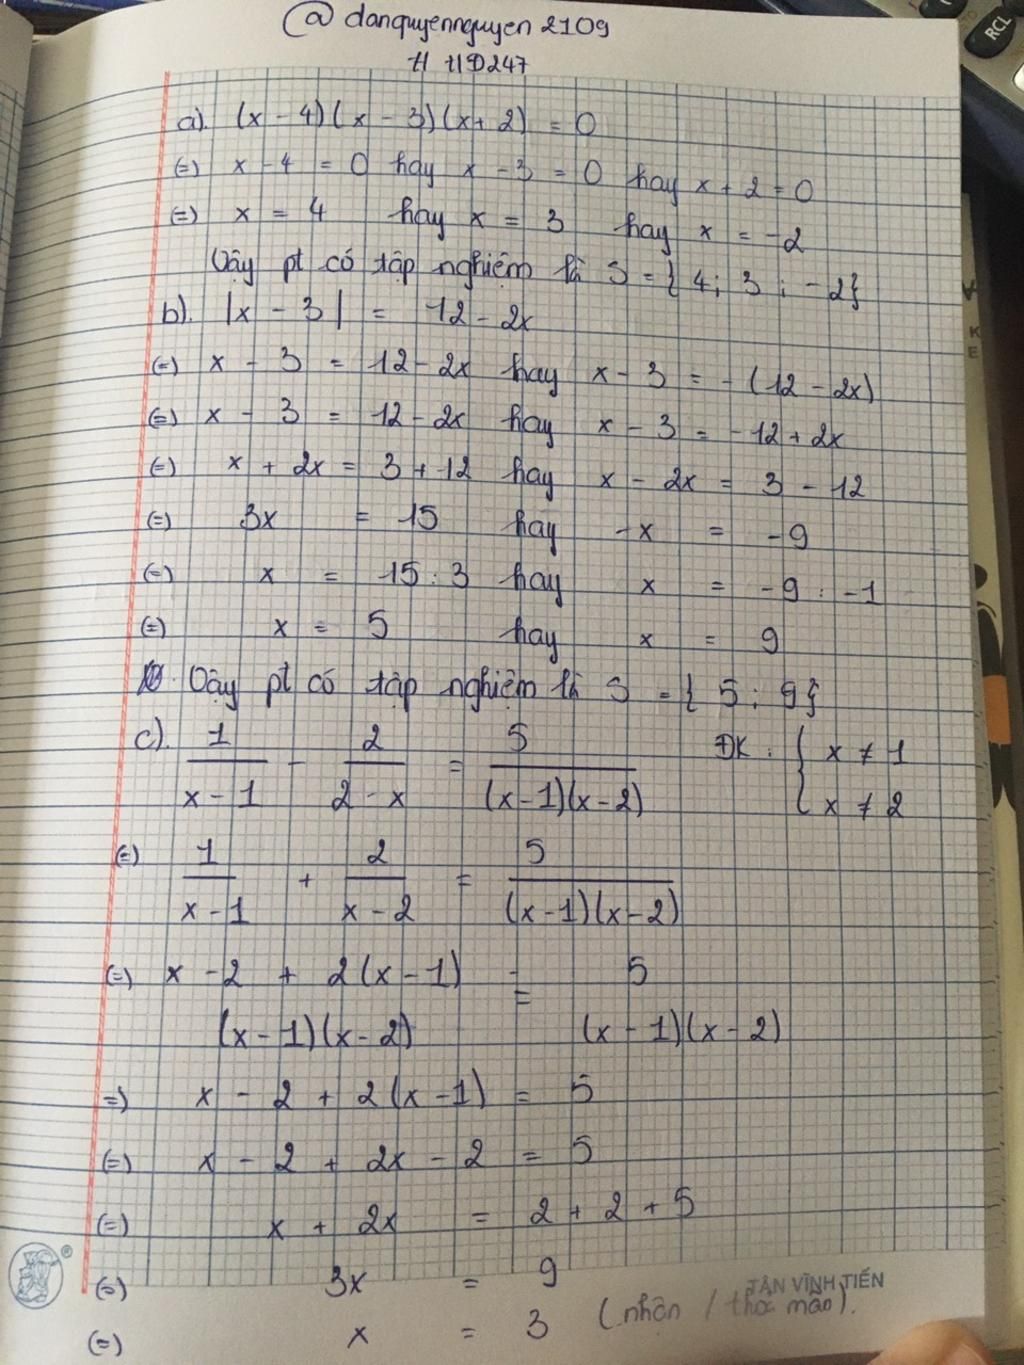 @ danquyennguyen 2109
# HD247
a). (x - 4)(x - 3)(x + 2) = 0
(=) x - 4 = 0 hay x - 3 = 0 hay x + 2 = 0
(=) x = 4 hay x = 3 hay x = -2
Vậy pt có tập nghiệm là S = { 4; 3 ; -2}
b). |x - 3| = 12 - 2x
(=) x - 3 = 12 - 2x hay x - 3 = - (12 - 2x)
(=) x - 3 = 12 - 2x hay x - 3 = -12 + 2x
(=) x + 2x = 3 + 12 hay x - 2x = 3 - 12
(=) 3x = 15 hay -x = -9
(=) x = 15 : 3 hay x = -9 : -1
(=) x = 5 hay x = 9
Vậy pt có tập nghiệm là S = { 5 ; 9}
c). 1/(x - 1) - 2/(2 - x) = 5/((x - 1)(x - 2)) ĐK : { x ≠ 1
x ≠ 2
(=) 1/(x - 1) + 2/(x - 2) = 5/((x - 1)(x - 2))
(=) x - 2 + 2(x - 1) = 5
(x - 1)(x - 2) (x - 1)(x - 2)
=) x - 2 + 2(x - 1) = 5
(=) x - 2 + 2x - 2 = 5
(=) x + 2x = 2 + 2 + 5
(=) 3x = 9
TÂN VĨNH TIẾN
(=) x = 3 (nhận / thỏa mãn).